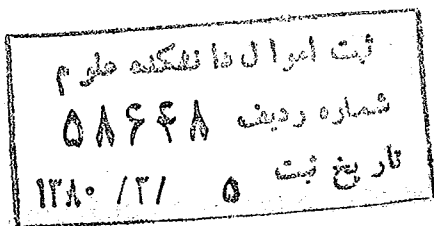 ثبت اموال دانشکده علوم
شماره ردیف ۵۸۶۴۸
تاریخ ثبت ۵ /۲/ ۱۳۸۰